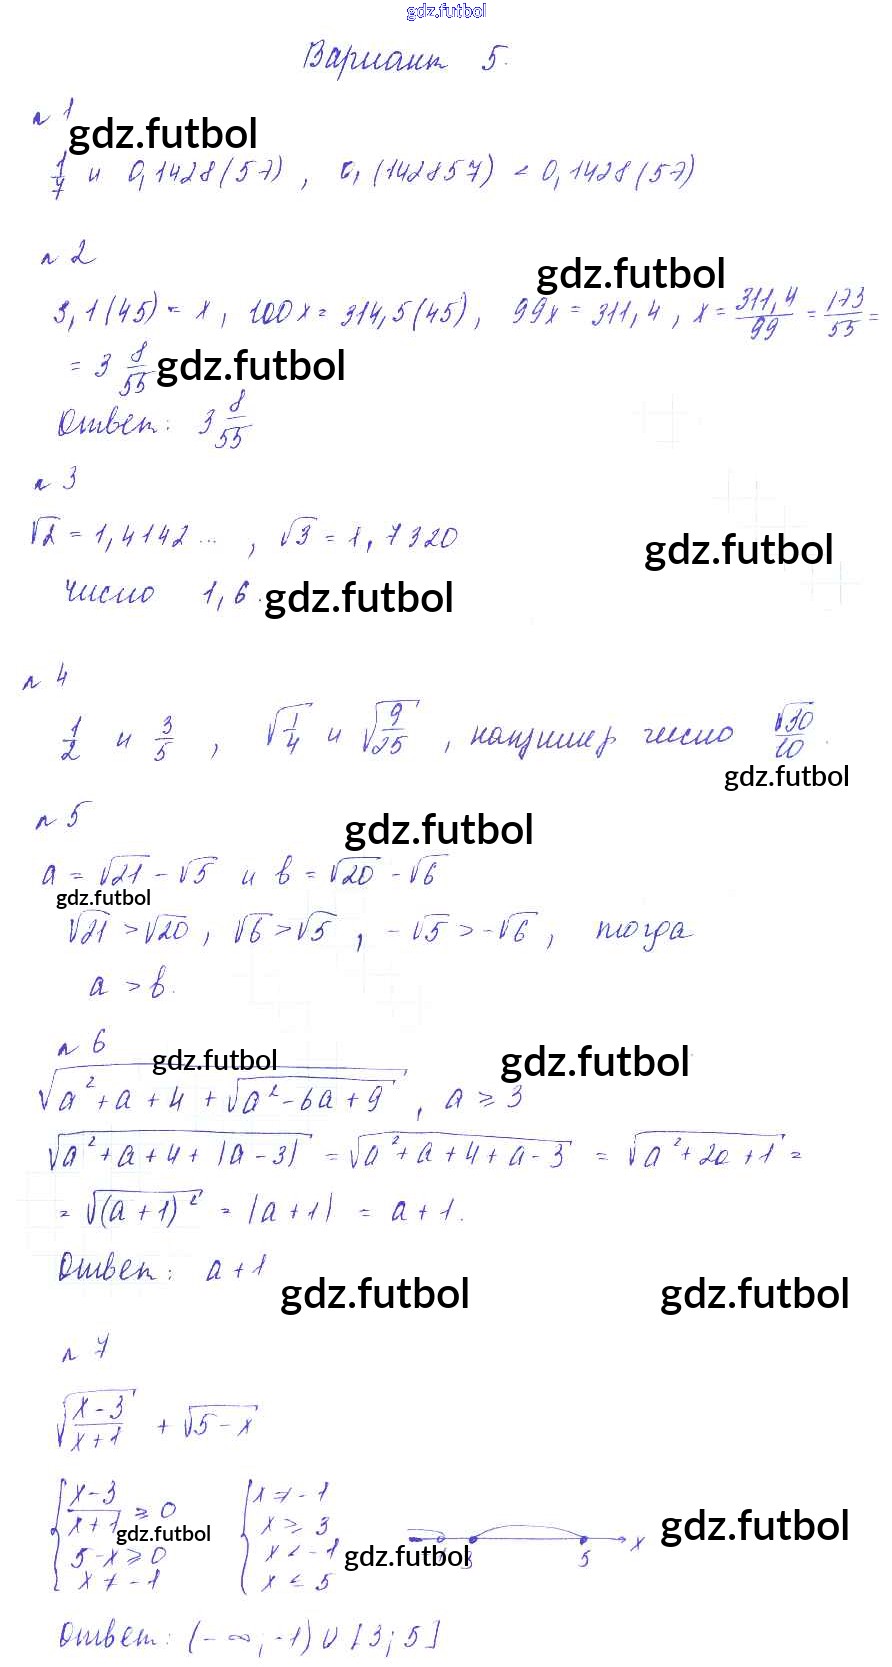 gdz.futbol
Вариант 5.
n 1
gdz.futbol
1/7 и 0,1428(57), 0,(142857) < 0,1428(57)
n 2
gdz.futbol
3,1(45) = x, 100x = 314,5(45), 99x = 311,4, x = 311,4/99 = 173/55 =
= 3 8/55
gdz.futbol
Ответ: 3 8/55
n 3
√2 = 1,4142..., √3 = 1,7320
gdz.futbol
Число 1,6.
gdz.futbol
n 4
1/2 и 3/5, √(1/4) и √(9/25), например число √30/10.
gdz.futbol
n 5
gdz.futbol
a = √21 - √5 и b = √20 - √6
gdz.futbol
√21 > √20, √6 > √5, -√5 > -√6, тогда
a > b.
n 6
gdz.futbol gdz.futbol
√(a² + a + 4 + √(a² - 6a + 9)), a ≥ 3
√(a² + a + 4 + |a - 3|) = √(a² + a + 4 + a - 3) = √(a² + 2a + 1) =
= √((a + 1)²) = |a + 1| = a + 1.
Ответ: a + 1
gdz.futbol gdz.futbol
n 7
√((x - 3)/(x + 1)) + √(5 - x)
{ (x - 3)/(x + 1) ≥ 0 { x ≠ -1
5 - x ≥ 0 x ≥ 3
x ≠ -1 x < -1
x ≤ 5
3 5 x
gdz.futbol gdz.futbol gdz.futbol
Ответ: (-∞; -1) ∪ [3; 5]